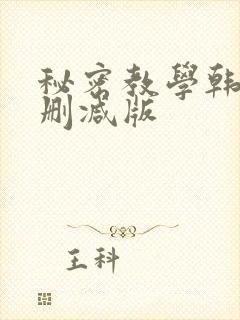 秘密教學韩
删减版
王科